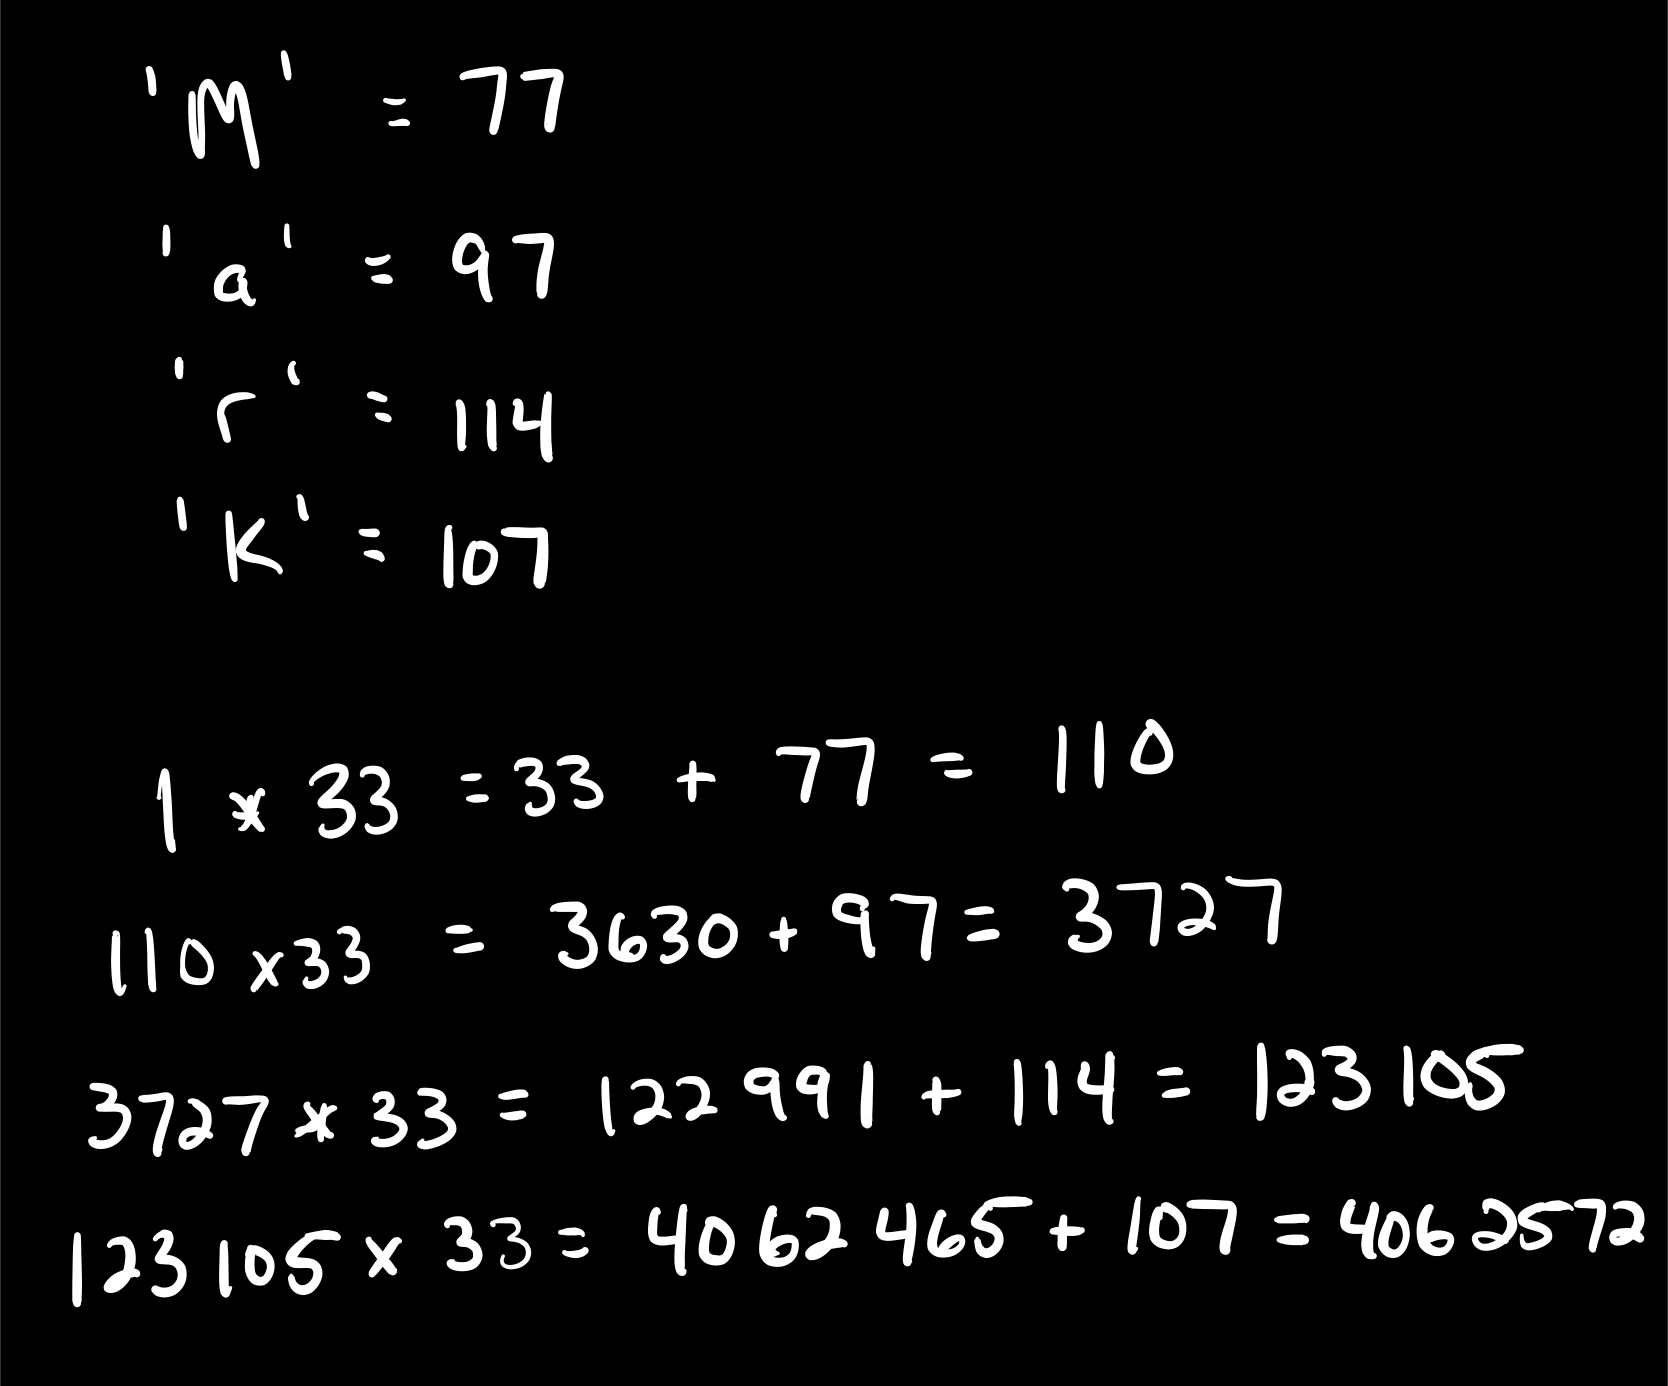 'M' = 77
'a' = 97
'r' = 114
'k' = 107
1 * 33 = 33 + 77 = 110
110 x 33 = 3630 + 97 = 3727
3727 * 33 = 122991 + 114 = 123105
123105 x 33 = 4062465 + 107 = 4062572